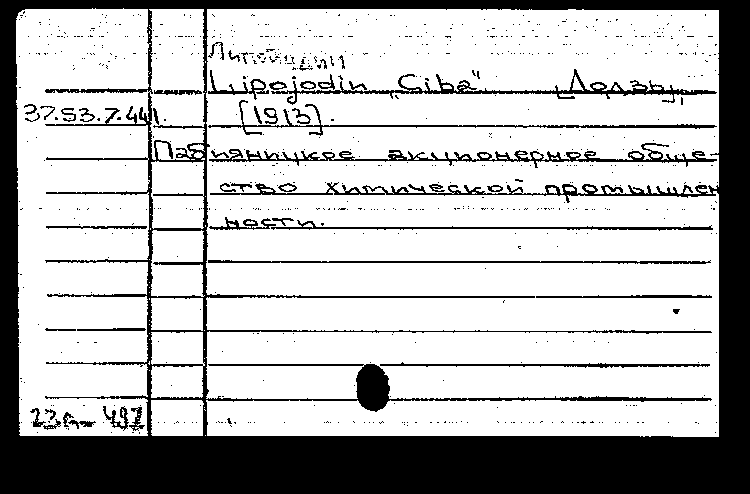 Липойодин
Lipojodin „Ciba“ [Лодзь],
37.53.7.441. [1913].
Пабияницкое акционерное обще-
ство химической промышлен
ности.
23а- 497